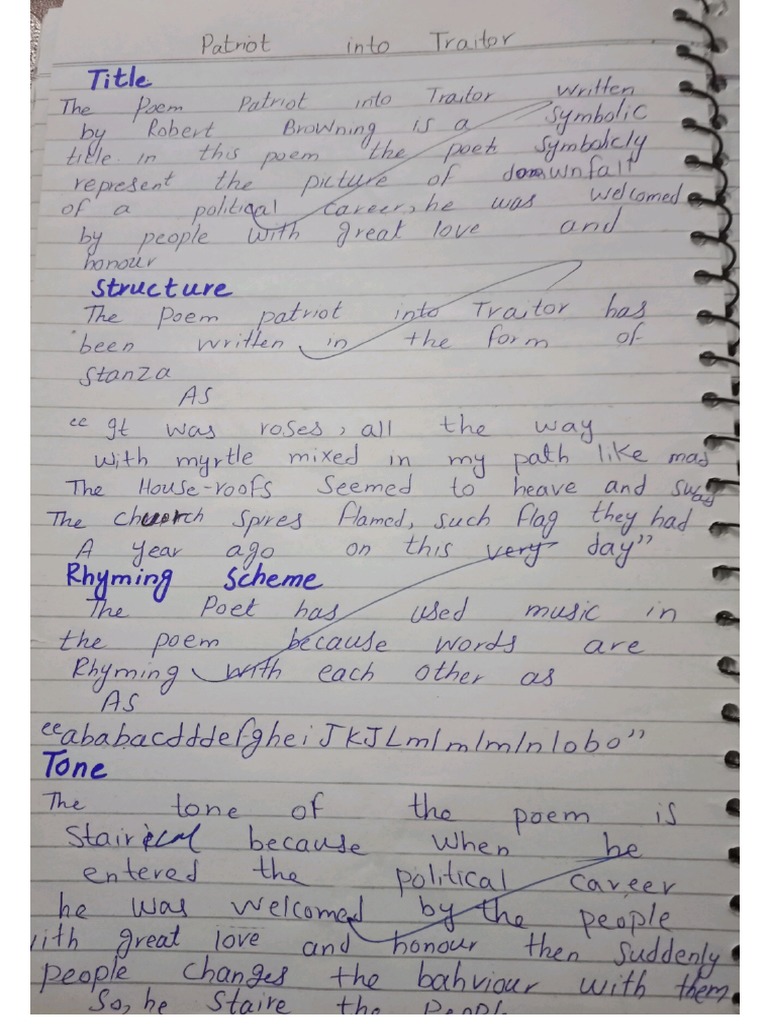 Patriot into Traitor
Title
The Poem Patriot into Traitor written
by Robert Browning is a symbolic
title. in this poem the poet symbolcly
represent the picture of downfall
of a political career, he was welcomed
by people with great love and
honour
Structure
The Poem patriot into Traitor has
been written in the form of
Stanza
AS
“It was roses, all the way
with myrtle mixed in my path like mad
The House-roofs seemed to heave and sway
The church spires flamed, such flag they had
A year ago on this very day”
Rhyming Scheme
The Poet has used music in
the poem because words are
Rhyming with each other as
AS
“ababacdddefgheiJKJLm/m/m/n/obo”
Tone
The tone of the poem is
Stairical because when he
entered the political career
he was welcomed by the people
with great love and honour then suddenly
people changes the bahviour with them
So, he Staire the People